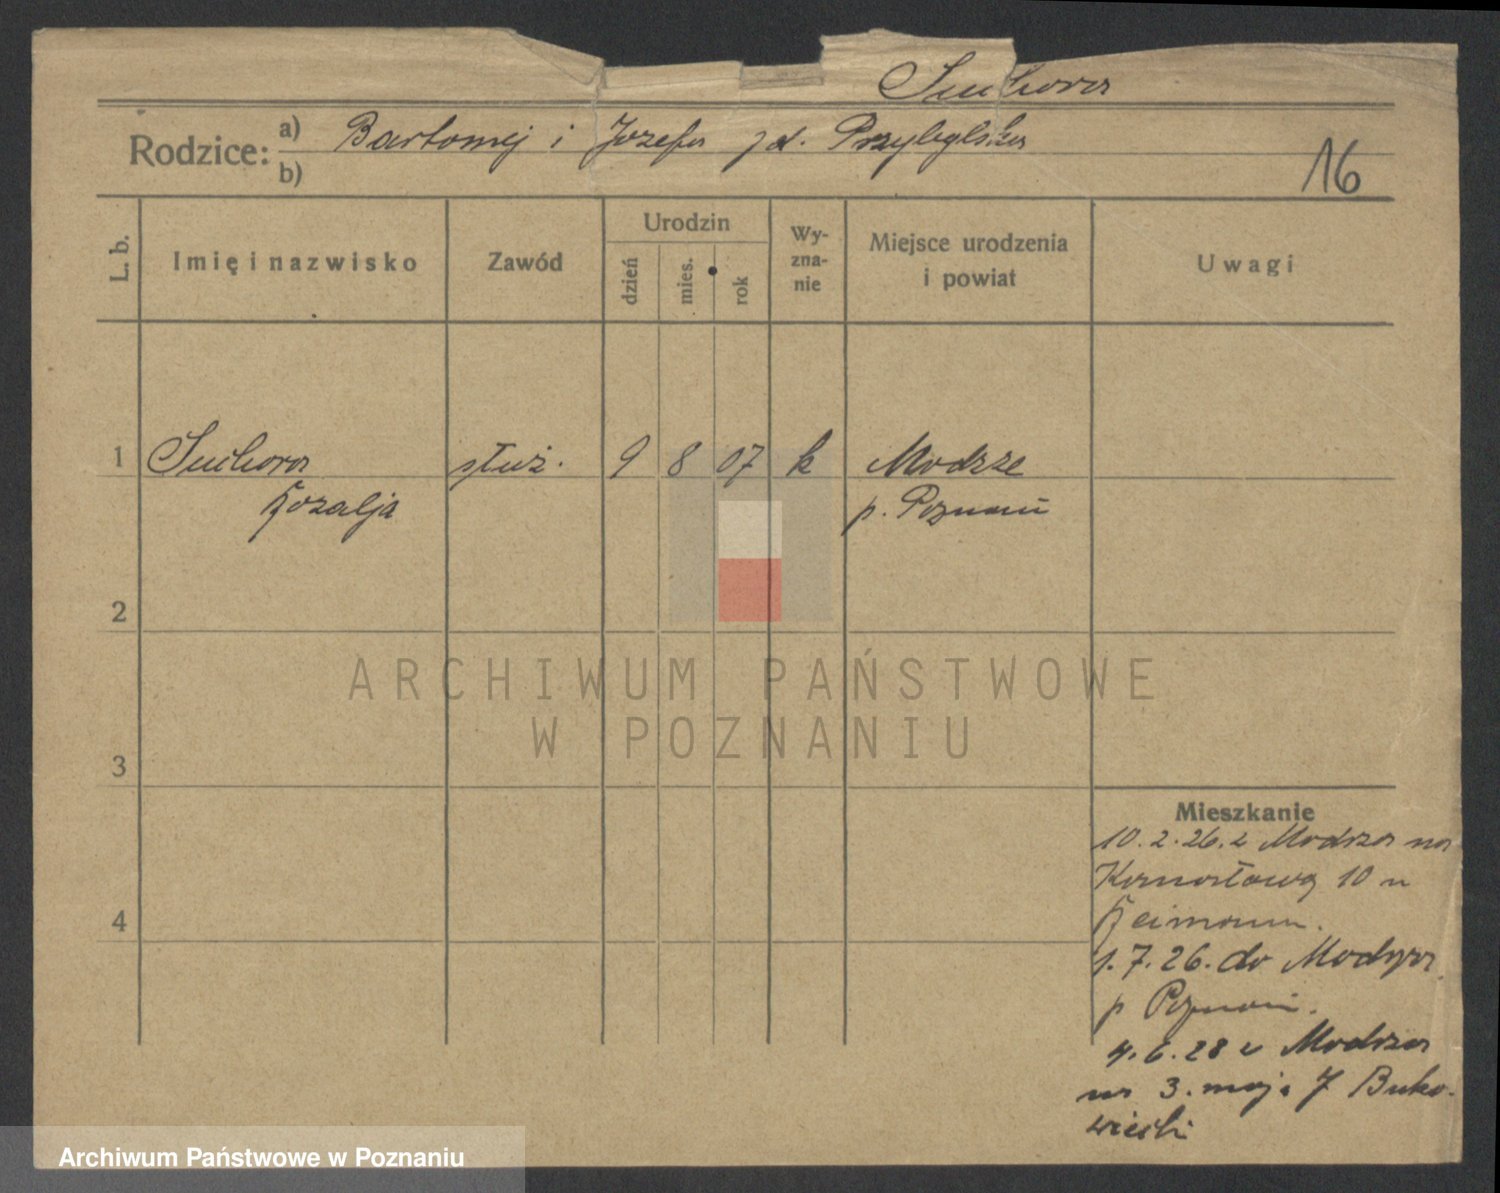 Suchora
Rodzice: a) Bartomej i Jozefa z d. Przybylska
b)
16
L. b.
Imię i nazwisko
Zawód
Urodzin
dzień
mies.
rok
Wy-
zna-
nie
Miejsce urodzenia
i powiat
Uwagi
1 Suchora służ. 9 8 07 k Modrze
Rozalja p. Poznań
2
3
4
Mieszkanie
10.2.26. z Modrza na
10 u
1.7.26. do Modrza
p Poznań.
4.6.28 z Modrza
na 3. maja 7 Buko-
wiecki
ARCHIWUM PAŃSTWOWE
W POZNANIU
Archiwum Państwowe w Poznaniu